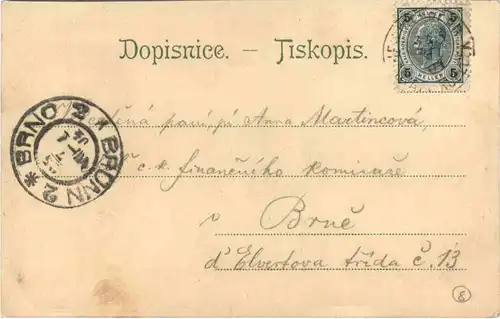 Dopisnice. – Tiskopis.
5 HELLER 5
ctěná paní pí Anna Martincová,
c. k. finančního komisaře
v
Brně
d'Elvertova třída č. 13
* BRNO 2 * BRÜNN 2
8